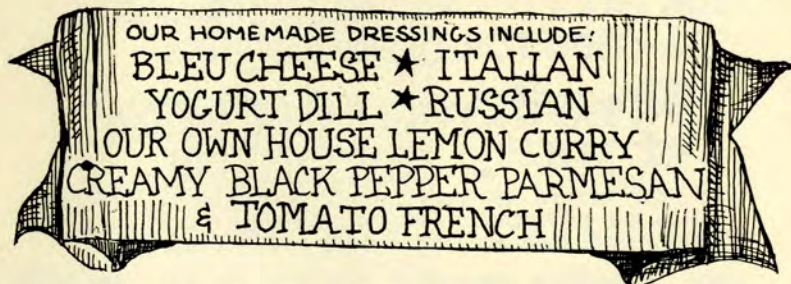 OUR HOMEMADE DRESSINGS INCLUDE:
BLEU CHEESE ★ ITALIAN
YOGURT DILL ★ RUSSIAN
OUR OWN HOUSE LEMON CURRY
CREAMY BLACK PEPPER PARMESAN
& TOMATO FRENCH